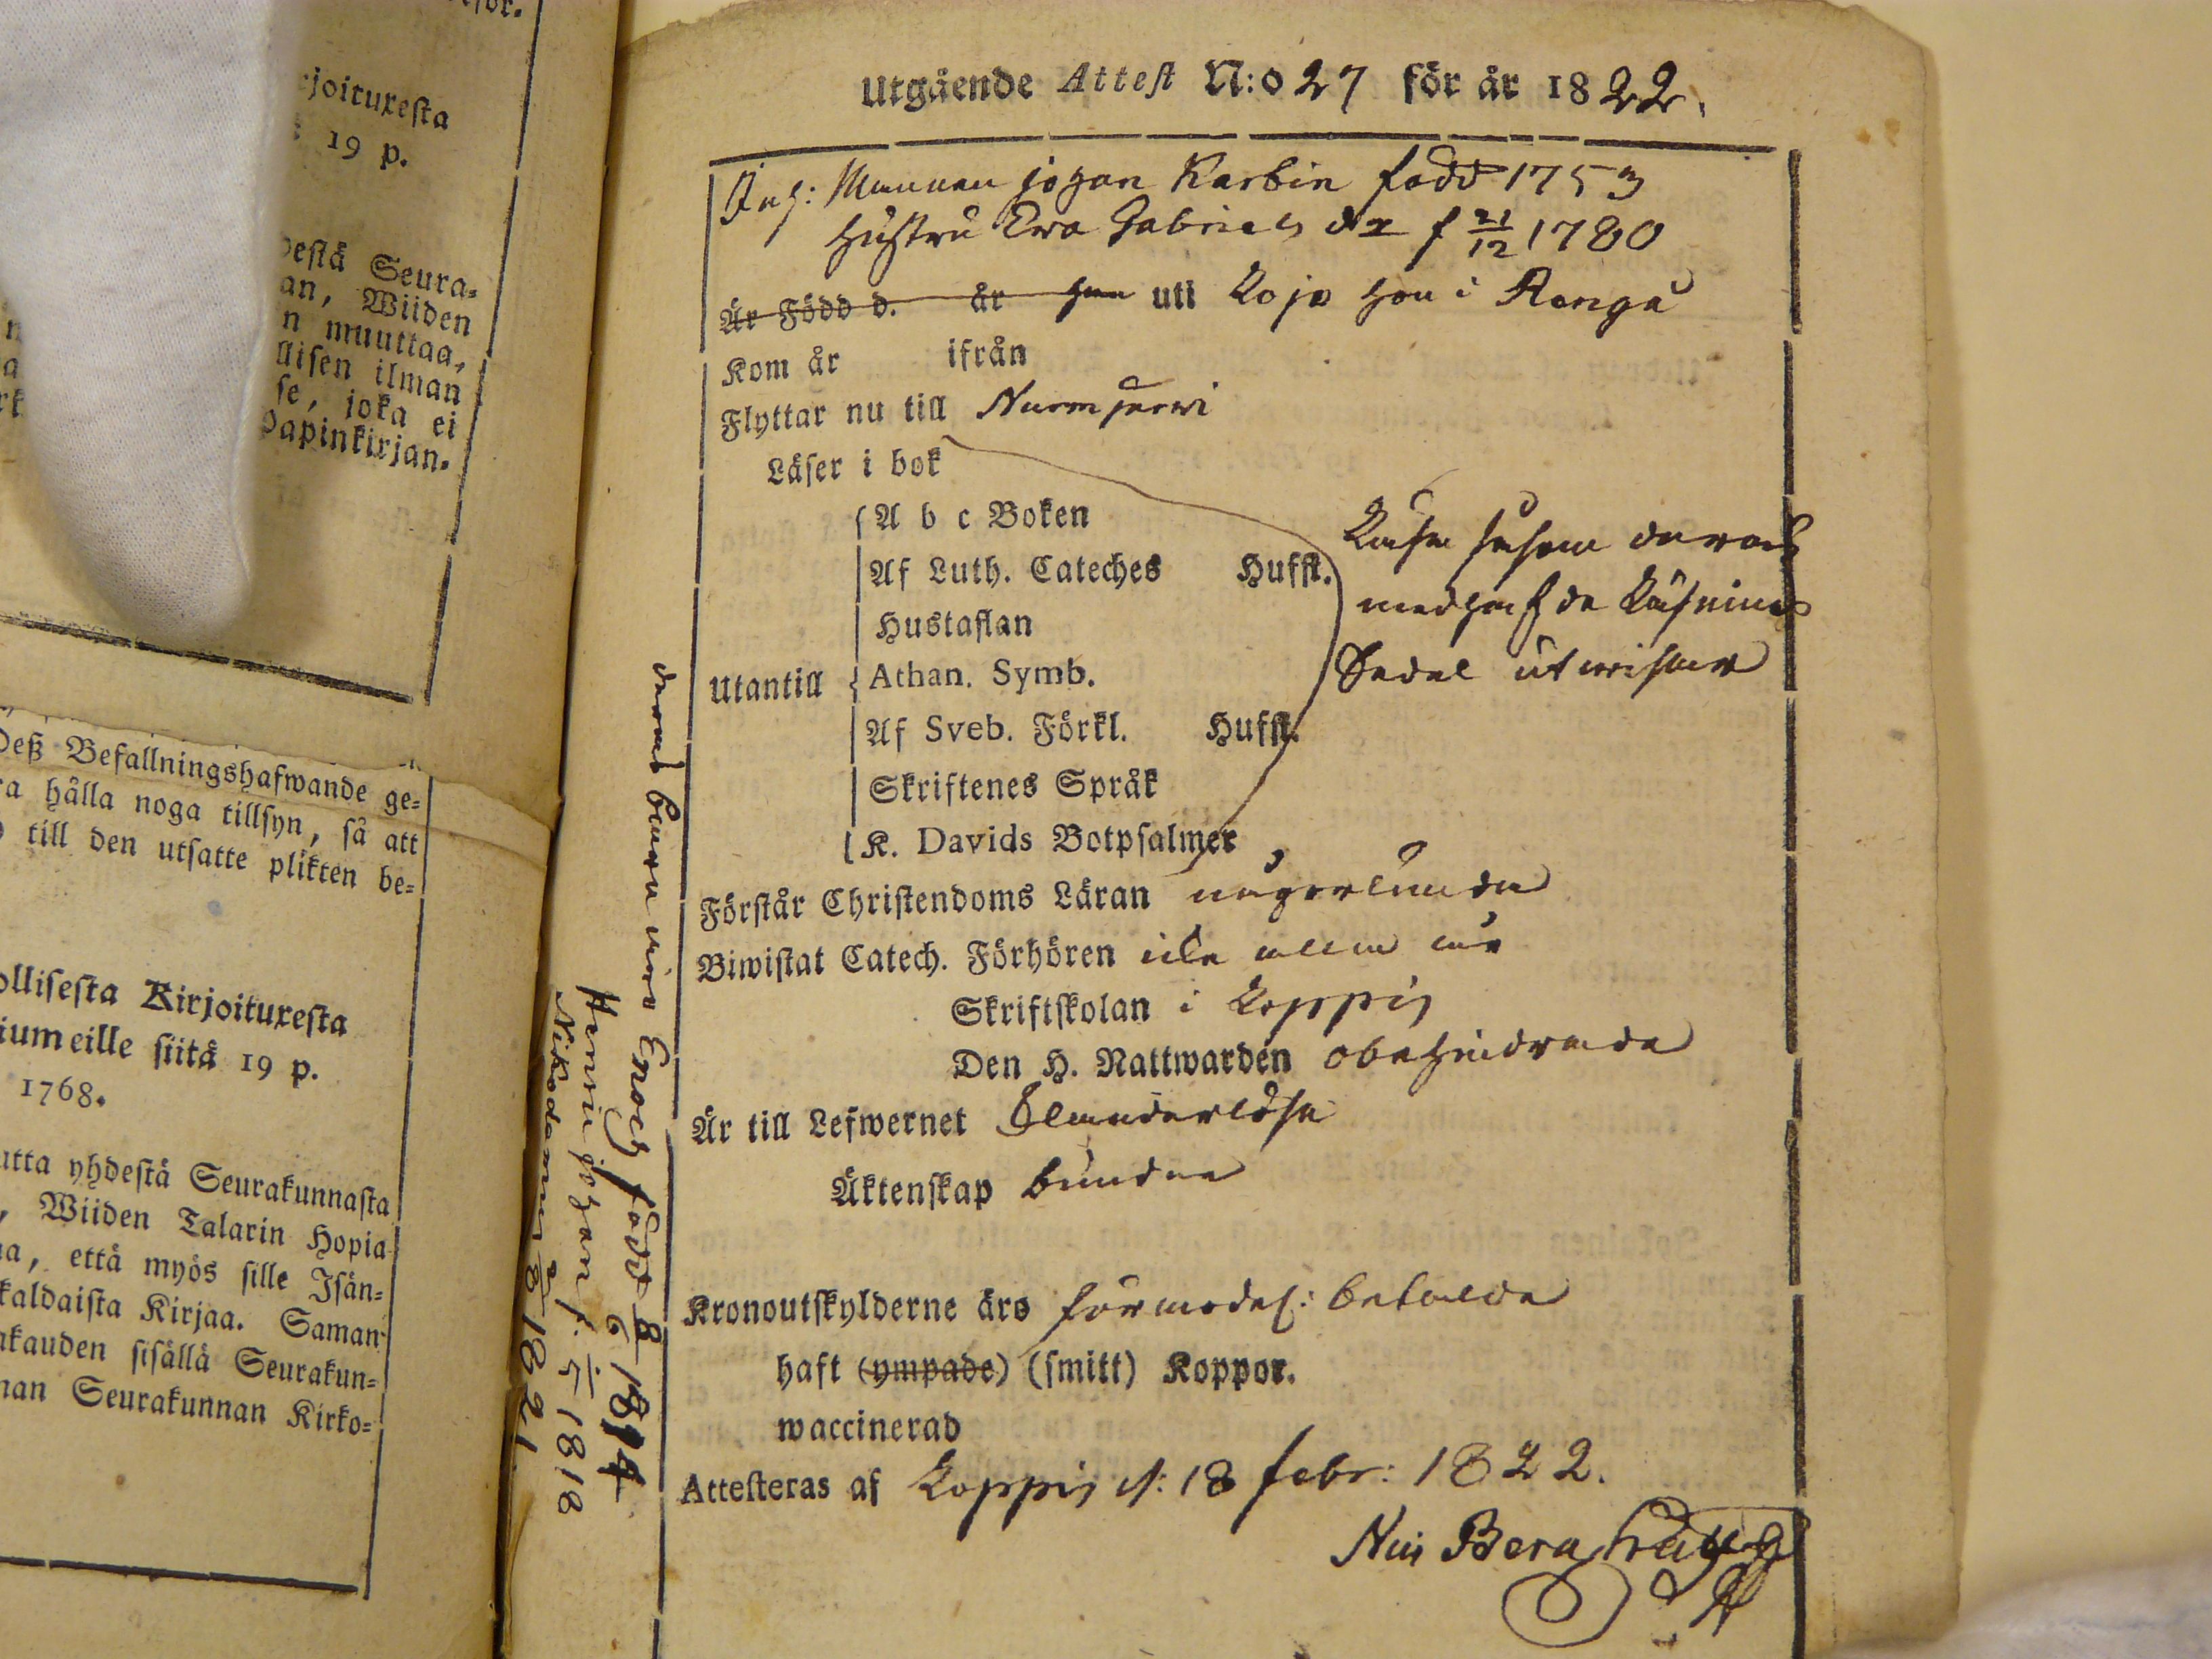 sor.
rjoituxesta
19 p.
destä Seura-
an, Wiiden
n muuttaa,
llisen ilman
se, joka ei
Papinkirjan.
Deß Befallningshafwande ge-
ra hålla noga tillsyn, så att
till den utsatte plikten be-
ollisesta Kirjoituxesta
iumeille siitä 19 p.
1768.
utta yhdestä Seurakunnasta
, Wiiden Talarin Hopia
a, että myös sille Isän-
kaldaista Kirjaa. Saman
akauden sisällä Seurakun-
nan Seurakunnan Kirko-
Utgående Attest N:o 27 för år 1822.
Inh: Mannen johan Karbin född 1753
Hustru Ewa Gabriels dr f 21/12 1780
Är Född d. år han uti Kojo hon i Rengå
Kom år ifrån
Flyttar nu till Nurmjerwi
Läser i bok
A b c Boken
Af Luth. Cateches Hufst.
Hustaflan
Utantill Athan. Symb.
Af Sveb. Förkl. Hufst.
Skriftenes Språk
K. Davids Botpsalmer
Läsa såsom deras
medhafde Läsnings
Sedel utwisar
Förstår Christendoms Läran någorlunda
Biwistat Catech. Förhören icke alla år
Skriftskolan i Loppis
Den H. Nattwarden obehindrade
Är till Lefwernet Klanderlösa
Äktenskap bundna
Kronoutskylderne äro förmodel: betalda
haft (ympade) (smitt) Koppor.
waccinerad
Attesteras af Loppis d: 18 febr: 1822.
Nils Bergh
deras barn äro Enoch född 8/6 1814
Henric johan f. 1/5 1818
Nikodemus 2/8 1821.